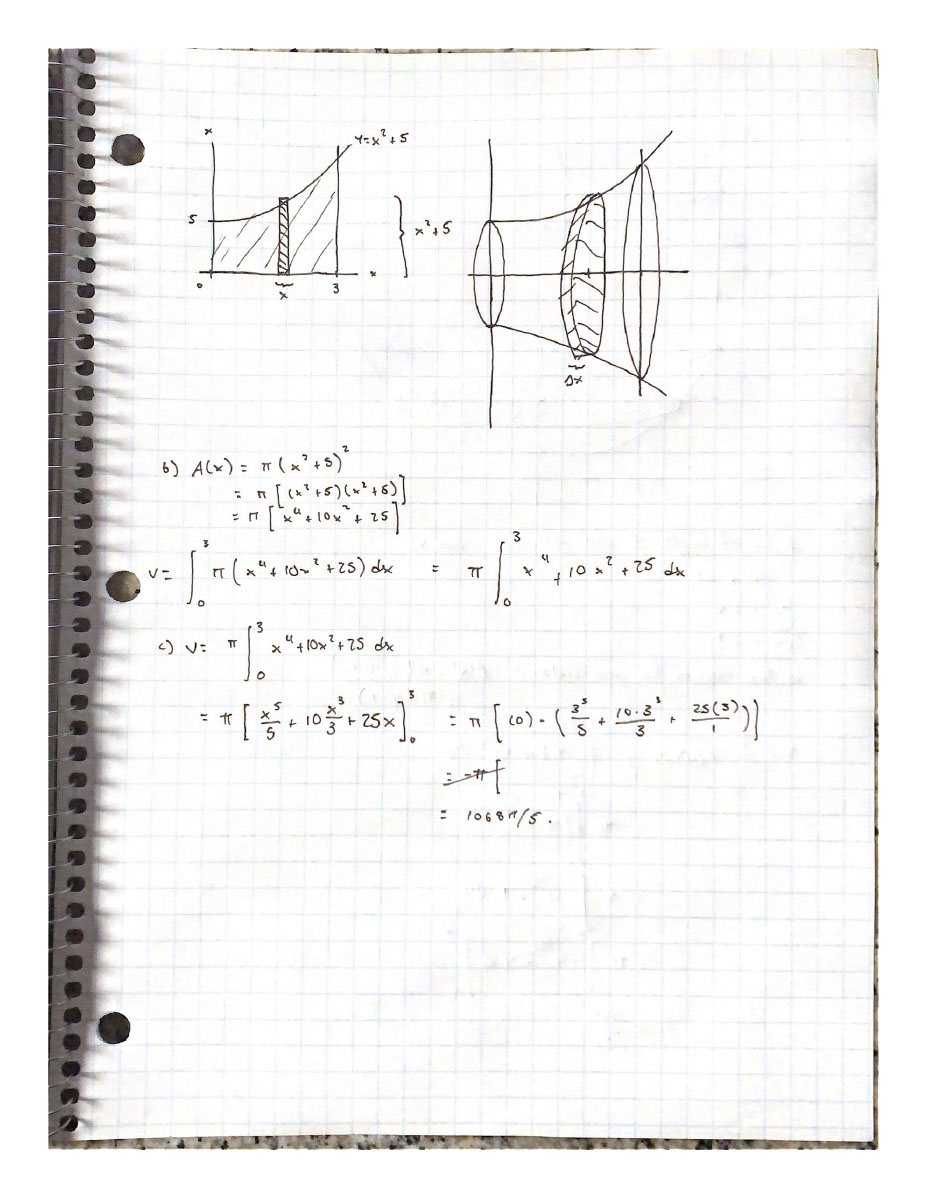 x
y=x²+5
5
} x²+5
0 x 3 x
Δx
b) A(x) = π(x²+5)²
= π[(x²+5)(x²+5)]
= π[x⁴+10x²+25]
V= ∫₀³ π(x⁴+10x²+25) dx = π ∫₀³ x⁴+10x²+25 dx
c) V= π ∫₀³ x⁴+10x²+25 dx
= π [x⁵/5 + 10 x³/3 + 25x]₀³ = π [(0) - (3⁵/5 + 10·3³/3 + 25(3)/1)]
= -π [
= 1068π/5.